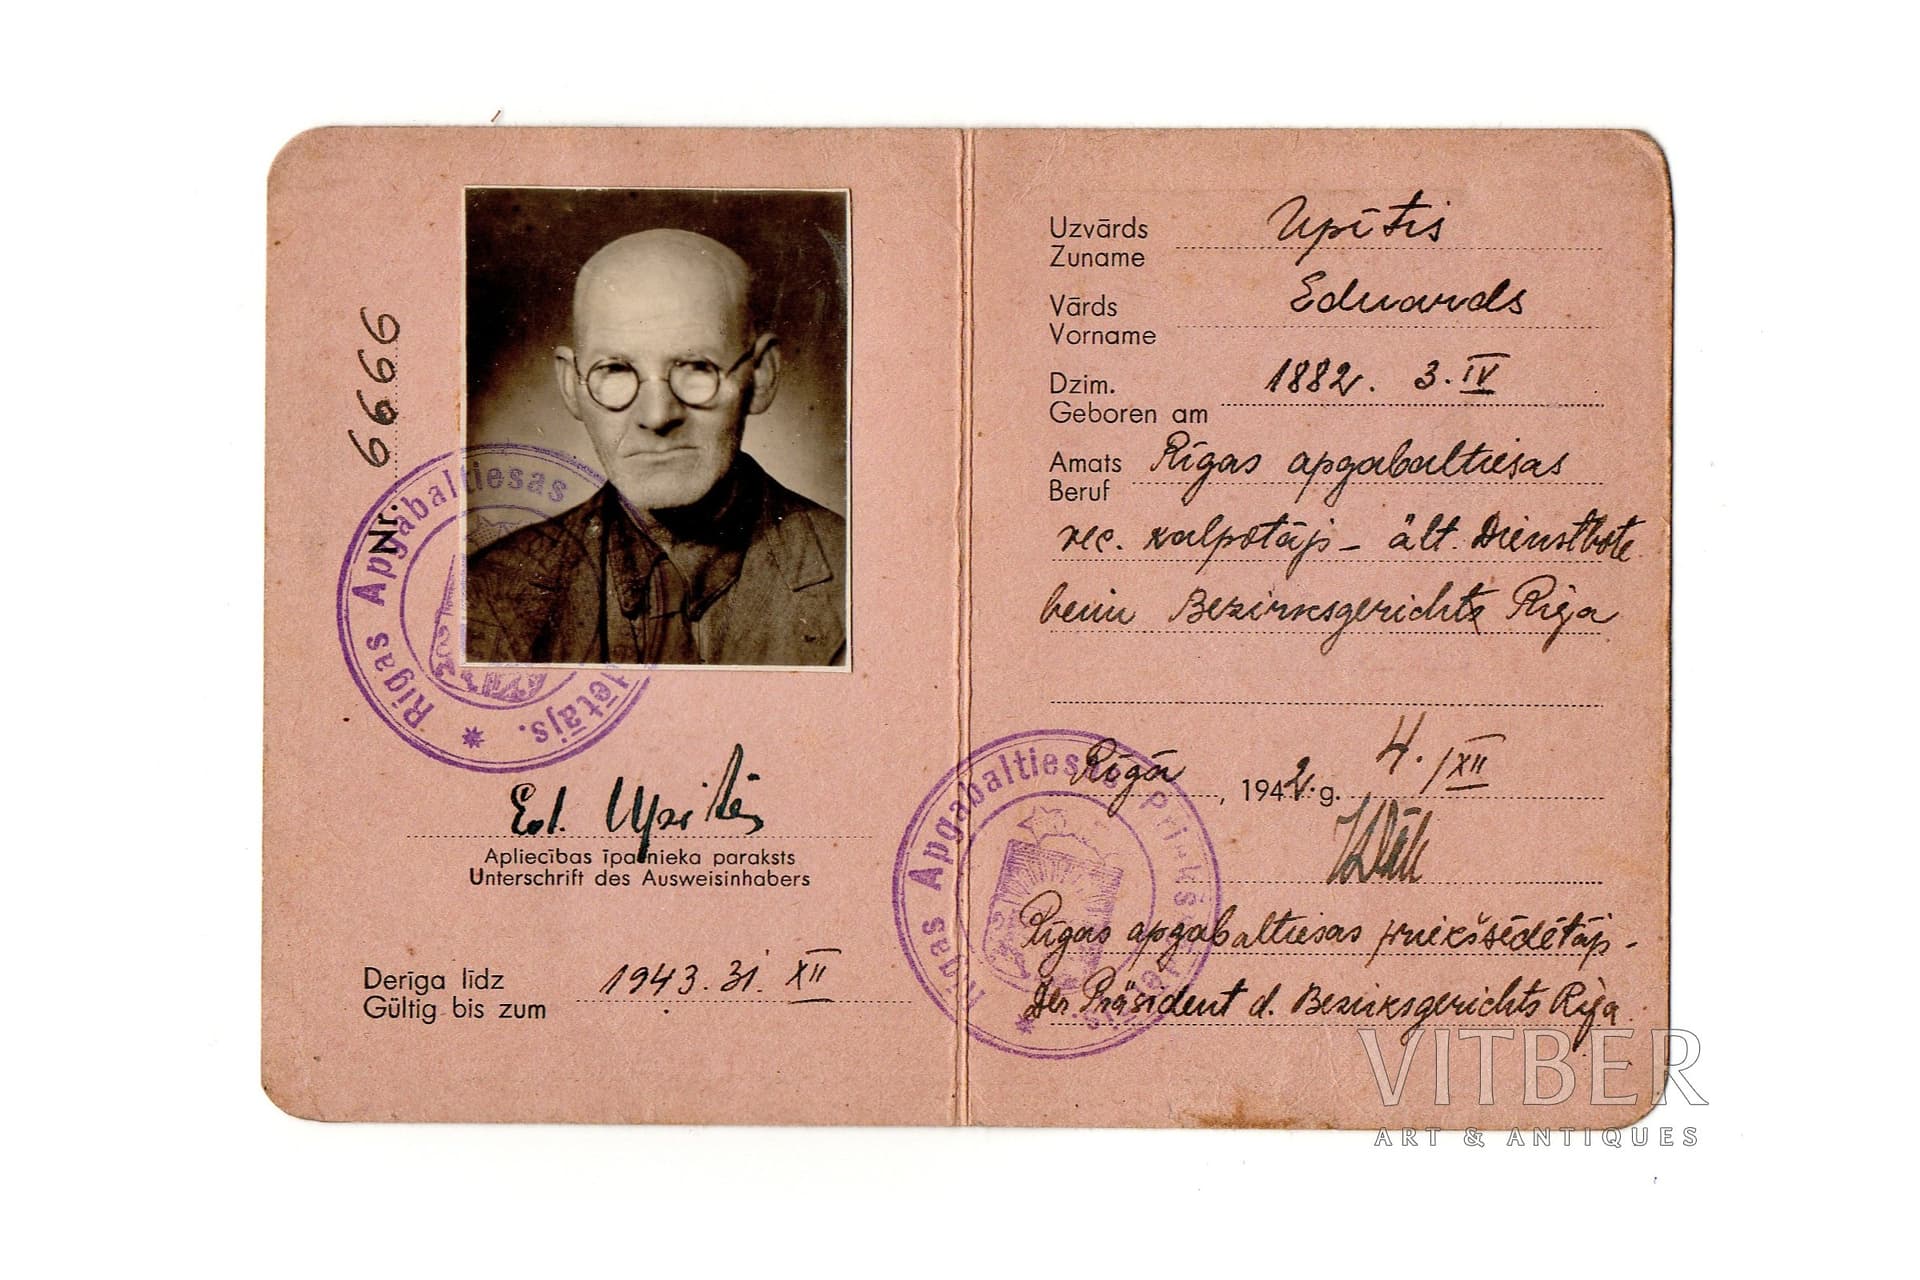 Nr. 6666
Rīgas Apgabaltiesas
lētājs.
Ed. Upītis
Apliecības īpašnieka paraksts
Unterschrift des Ausweisinhabers
Derīga līdz
Gültig bis zum
1943. 31. XII
Uzvārds Upītis
Zuname
Vārds Eduards
Vorname
Dzim. 1882. 3. IV
Geboren am
Amats Rīgas apgabaltiesas
Beruf
vec. kalpotājs - ält. Dienstbote
beim Bezirksgerichts Riga
Rīgā, 1942. g. 4. /XII
Rīgas Apgabaltiesas Priekš
Rīgas apgabaltiesas priekšsēdētājs -
Der Präsident d. Bezirksgerichts Riga
VITBER
ART & ANTIQUES